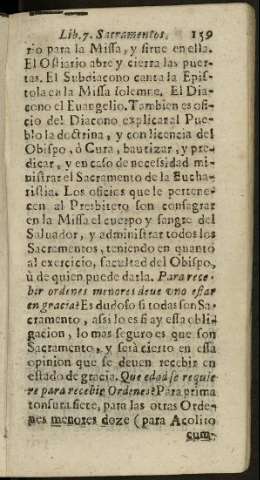 Lib. 7. Sacramentos. 159
rio para la Missa, y sirue en ella.
El Ostiario abre y cierra las puer-
tas. El Subdiacono canta la Epis-
tola en la Missa solemne. El Dia-
cono el Euangelio. Tambien es ofi-
cio del Diacono explicar al Pue-
blo la doctrina, y con licencia del
Obispo, ò Cura, bautizar, y pre-
dicar, y en caso de necessidad mi-
nistrar el Sacramento de la Eucha-
ristia. Los oficios que le pertene-
cen al Presbitero son consagrar
en la Missa el cuerpo y sangre del
Saluador, y administrar todos los
Sacramentos, teniendo en quanto
al exercicio, facultad del Obispo,
ù de quien puede darla. Para rece-
bir ordenes menores deue vno estar
en gracia? Es dudoso si todas son Sa-
cramento, assi lo es si ay essa obli-
gacion, lo mas seguro es que son
Sacramento, y serà cierto en essa
opinion que se deuen recebir en
estado de gracia. Que edad se requie
re para recebir Ordenes? Para prima
tonsura siete, para las otras Orde-
nes menores doze (para Acolito
cum-